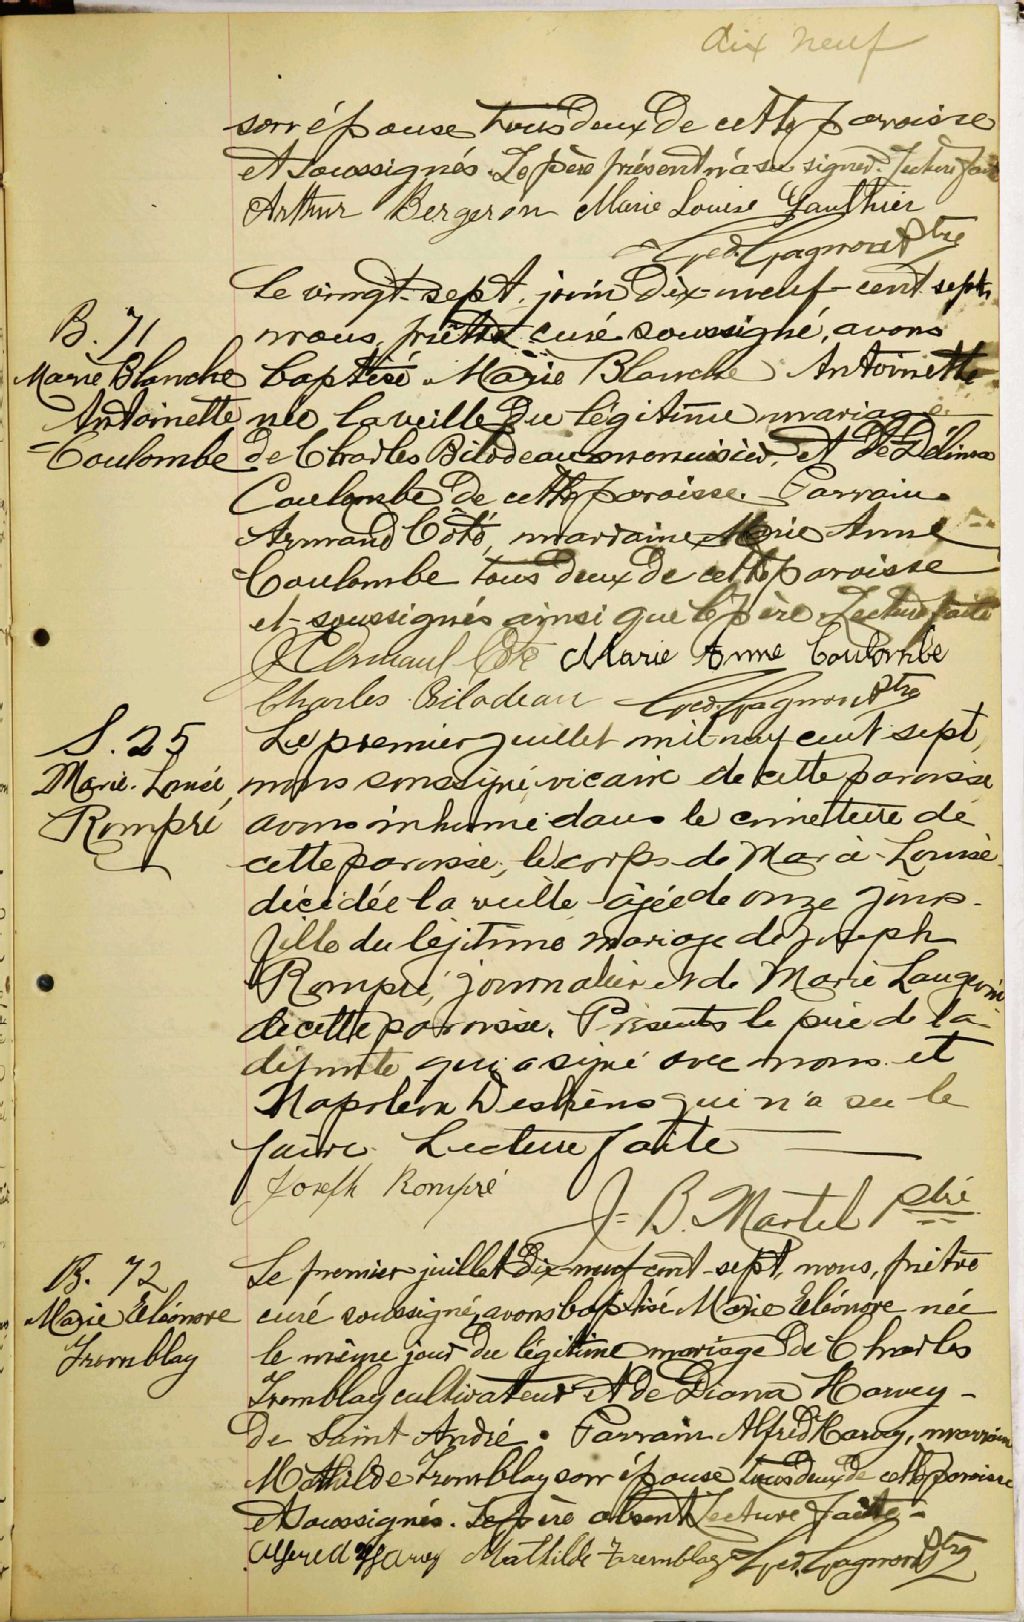 dix neuf
son épouse tous deux de cette paroisse
et soussignés. Le père présent n'a su signer. Lecture faite
Arthur Bergeron Marie Louise Gauthier
Gagnon Ptre
Le vingt-sept juin dix-neuf-cent sept,
nous, prêtre curé soussigné, avons
B. 71
Marie Blanche
Antoinette
Coulombe
baptisé Marie Blanche Antoinette
née la veille du légitime mariage
de Charles Bilodeau menuisier, et de Délima
Coulombe de cette paroisse. Parrain
Armand Côté, marraine Marie Anne
Coulombe tous deux de cette paroisse
et soussignés ainsi que le père Lecture faite
J Armand Côté Marie Anne Coulombe
Charles Bilodeau Gagnon Ptre
S. 25
Marie-Louise
Rompré
Le premier juillet mil neuf cent sept,
nous soussigné vicaire de cette paroisse
avons inhumé dans le cimetière de
cette paroisse, le corps de Marie-Louise
décédée la veille âgée de onze jours
fille du légitime mariage de Joseph
Rompré, journalier et de Marie Langevin
de cette paroisse. Présents le père de la
défunte qui a signé avec nous et
Napoléon Deshiens qui n'a su le
faire. Lecture faite
Joseph Rompré
J-B. Martel ptre
B. 72
Marie Eléonore
Tremblay
Le premier juillet dix-neuf-cent-sept, nous, prêtre
curé soussigné, avons baptisé Marie Eléonore née
le même jour du légitime mariage de Charles
Tremblay cultivateur et de Diana Harvey
de Saint André. Parrain Alfred Harvey, marraine
Mathilde Tremblay son épouse tous deux de cette paroisse
et soussignés. Le père absent Lecture faite
Alfred Harvey Mathilde Tremblay Gagnon Ptre